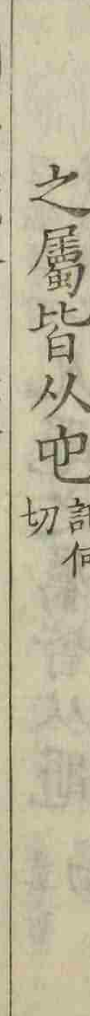 之屬皆从它託何切